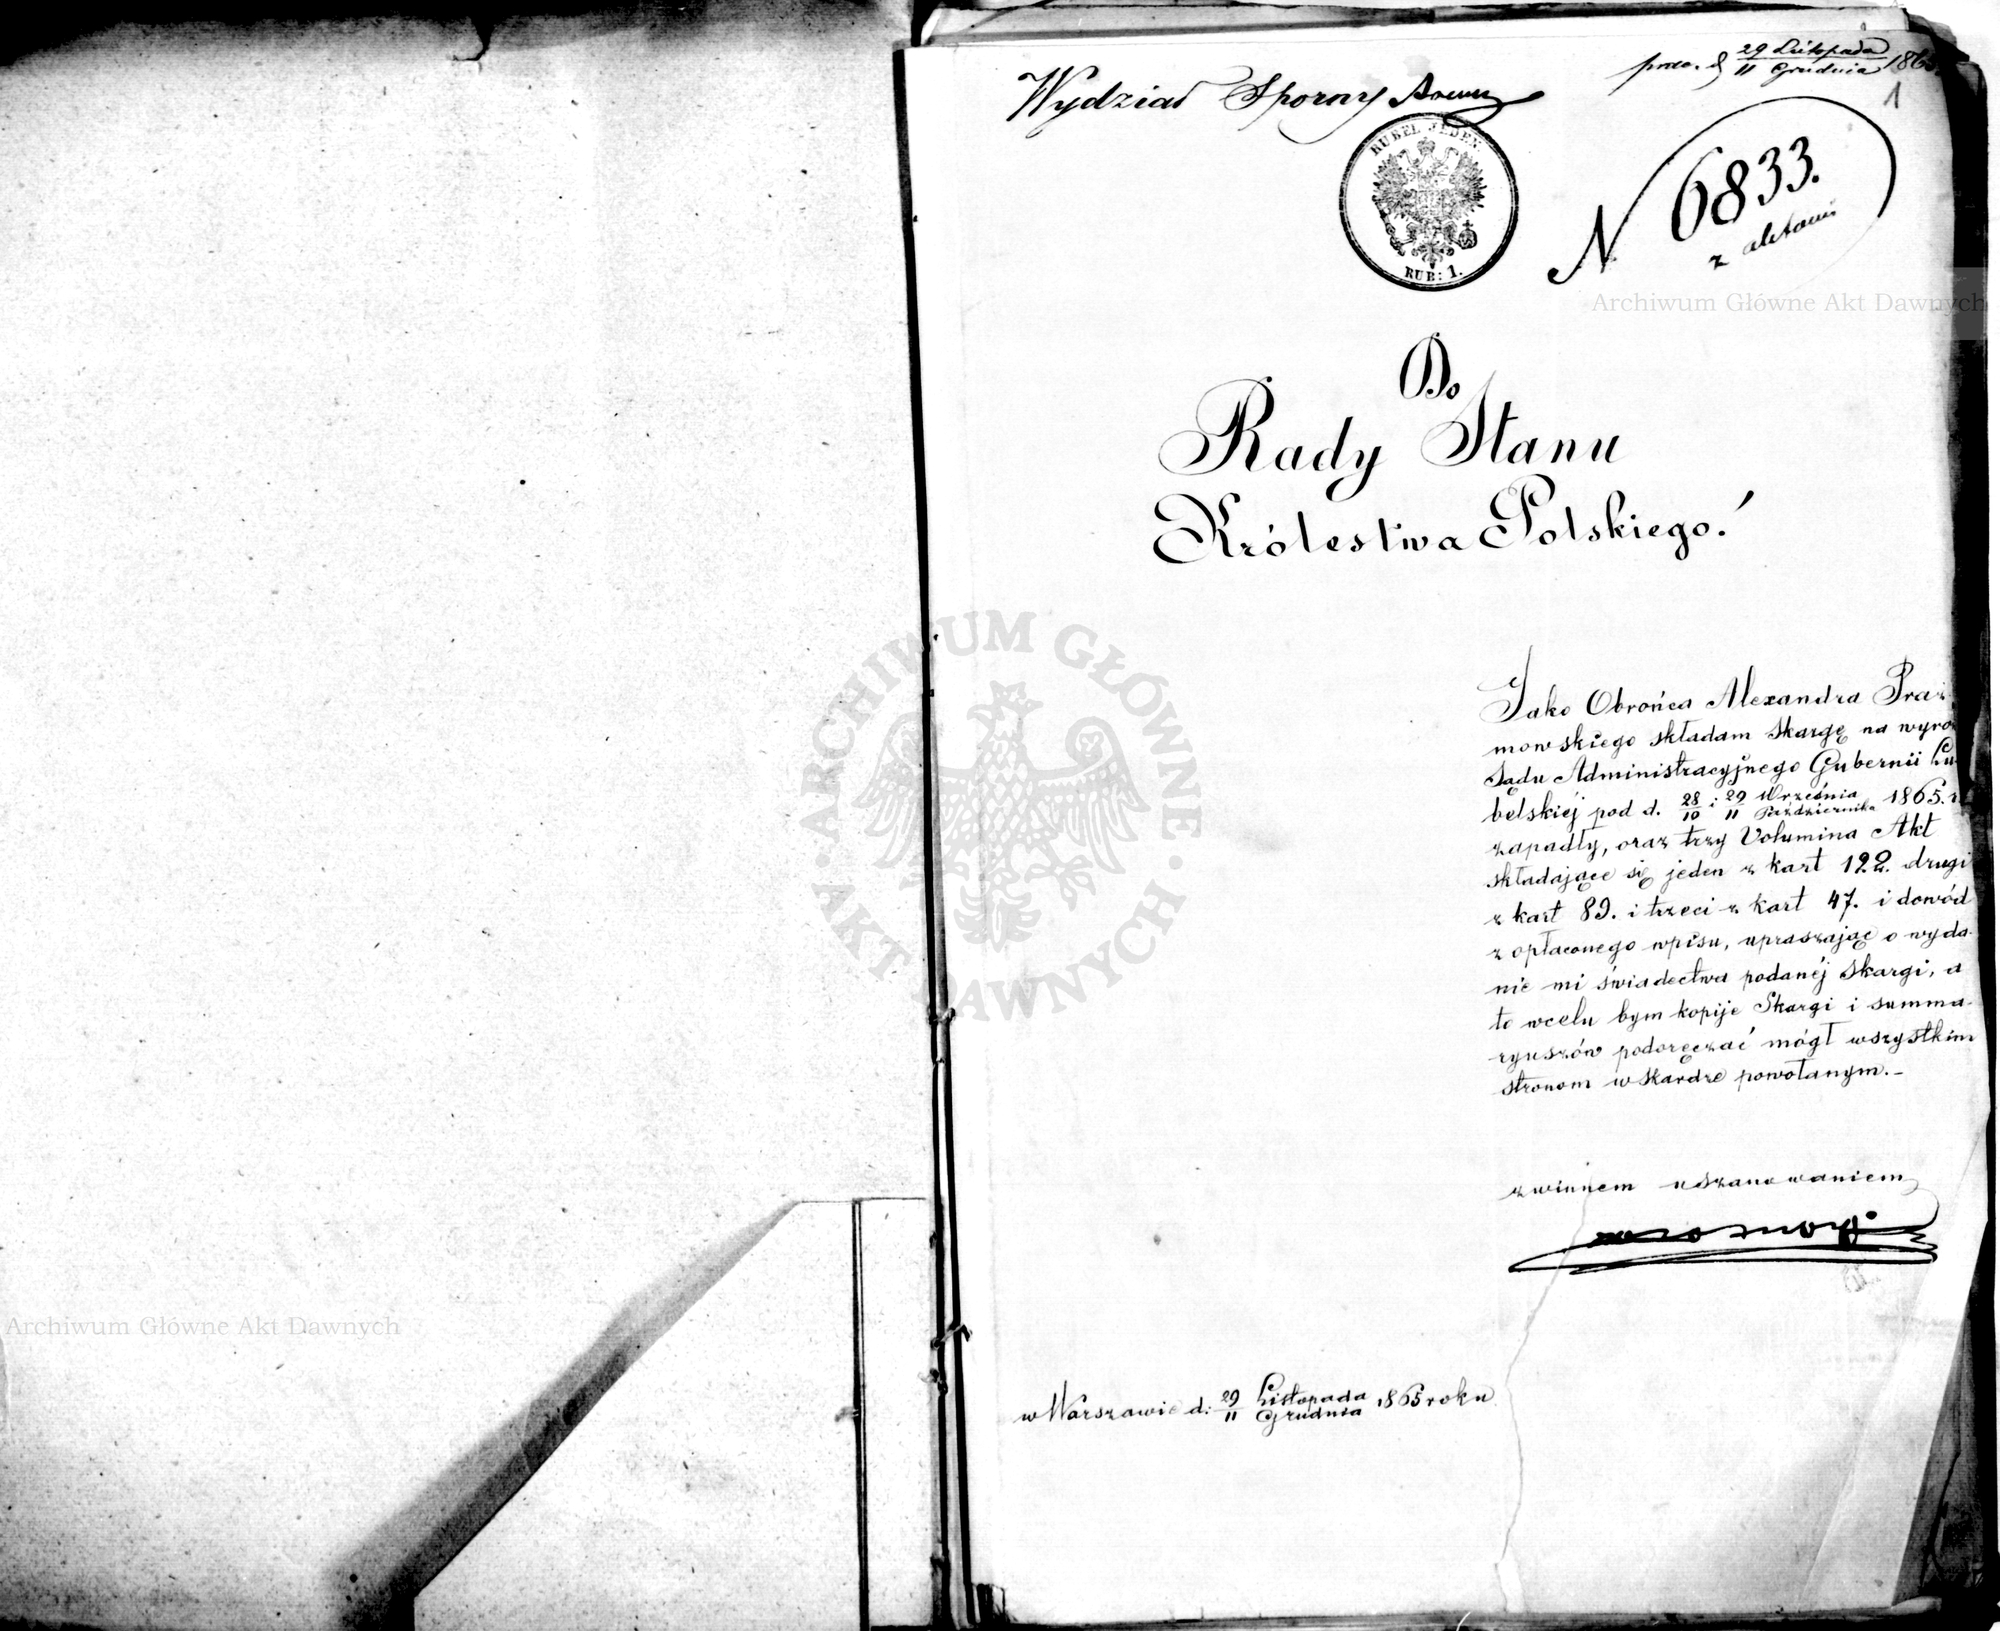 29 Listopada
11 Grudnia 1865
1
Wydział Sporny
RUBEL JEDEN
RUB: 1.
N 6833.
z aktami
Archiwum Główne Akt Dawnych
Do
Rady Stanu
Królestwa Polskiego!
ARCHIWUM GŁÓWNE AKT DAWNYCH
Jako Obrońca Alexandra Praż-
mowskiego składam Skargę na wyro
Sądu Administracyjnego Gubernii Lu-
belskiéj pod d. 28/10 i 29/11 Września/Października 1865. r.
zapadły, oraz trzy Volumina Akt
składające się jeden z kart 122. drugi
z kart 89. i trzeci z kart 47. i dowód
z opłaconego wpisu, upraszając o wyda-
nie mi świadectwa podanéj Skargi, a
to w celu bym kopije Skargi i summa-
ryuszów podoręczać mógł wszystkim
stronom w Skardze powołanym.-
z winnem uszanowaniem
Archiwum Główne Akt Dawnych
w Warszawie d: 29/11 Listopada/Grudnia 1865 roku